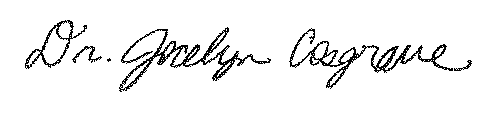 Dr. Jocelyn Cosgrave